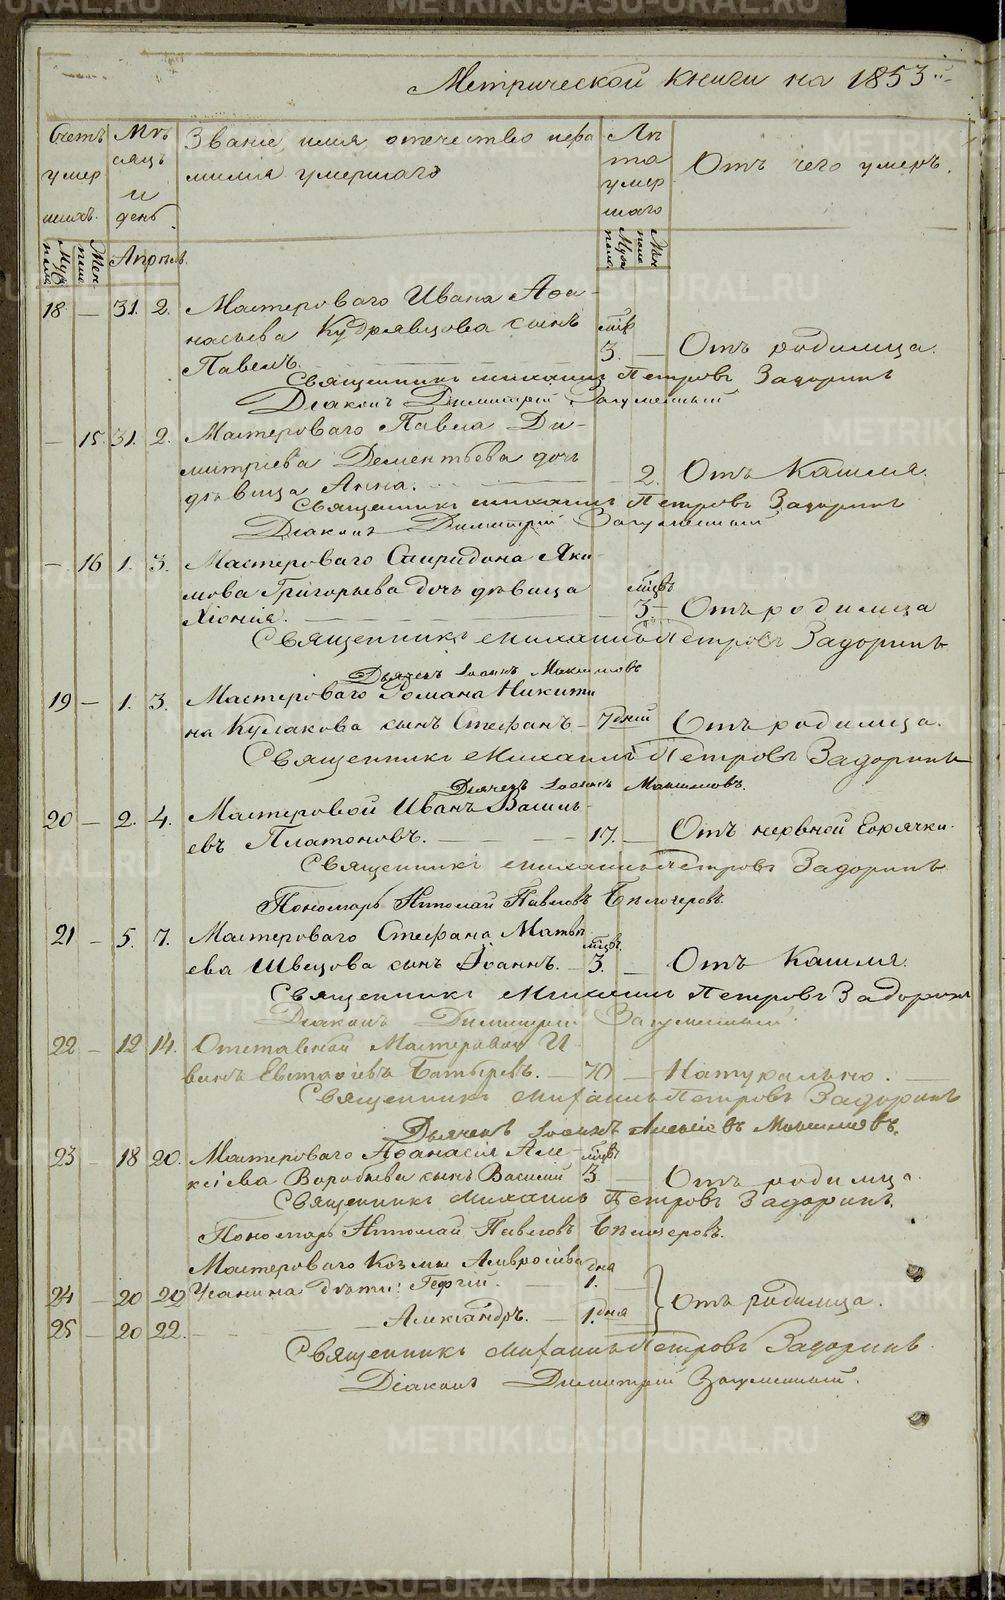 Метрической книги на 1853й
Счетъ умер шихъ.
Мѣ сяцъ и день
Званіе имя отечество и фа
милія умершаго
Лѣ та умер шаго
Отъ чего умеръ.
Муж пола
Жен пола
Апрель.
Муж пола
Жен пола
18. — 31. 2. Мастероваго Ивана Афа-
насьева Кудрявцова сынъ мѣс
Павелъ. 3. — Отъ родимца.
Священникъ Михаилъ Петровъ Задоринъ
Діаконъ Димитрій Загуменный
— 15. 31. 2. Мастероваго Павла Ди-
митріева Дементьева дочь
дѣвица Анна. — 2. Отъ Кашля.
Священникъ Михаилъ Петровъ Задоринъ
Діаконъ Димитрій Загуменный
— 16 1. 3. Мастероваго Спиридона Яки-
мова Григорьева дочь дѣвица мѣсцъ
Хіонія. — 3 — Отъ родимца
Священникъ Михаилъ Петровъ Задоринъ
Дьячекъ Іоаннъ Максимовъ
19 — 1. 3. Мастероваго Романа Никити
на Кулакова сынъ Стефанъ — 7 дней Отъ родимца.
Священникъ Михаилъ Петровъ Задоринъ
Дьячекъ Іоаннъ Максимовъ.
20 — 2. 4. Мастеровой Иванъ Василь-
евъ Платоновъ. — 17. — Отъ нервной Горячки.
Священникъ Михаилъ Петровъ Задоринъ
Пономарь Николай Павловъ Бѣлозеровъ
21 — 5. 7. Мастероваго Стефана Матвѣ
ева Швецова сынъ Іоаннъ. — мѣсцъ 3. — Отъ Кашля.
Священникъ Михаилъ Петровъ Задоринъ
Діаконъ Димитрій Загуменный.
22 — 12 14. Отставной Мастеровой И-
ванъ Евстафіевъ Батыревъ. — 70 — Натурально. —
Священникъ Михаилъ Петровъ Задоринъ
Дьячекъ Іоаннъ Максимовъ.
23 — 18 20. Мастероваго Афанасія Але- мѣсцъ
ксіева Воробьева сынъ Василій 3. — Отъ родимца.
Священникъ Михаилъ Петровъ Задоринъ.
Пономарь Николай Павловъ Бѣлозеровъ.
Мастероваго Козмы Амвросіева дня
24 — 20 22 Усанина дѣти: Георгій. — 1. — Отъ родимца.
25 — 20 22. — Александръ. — 1. дня
Священникъ Михаилъ Петровъ Задоринъ
Діаконъ Димитрій Загуменный.
METRIKI.GASO-URAL.RU